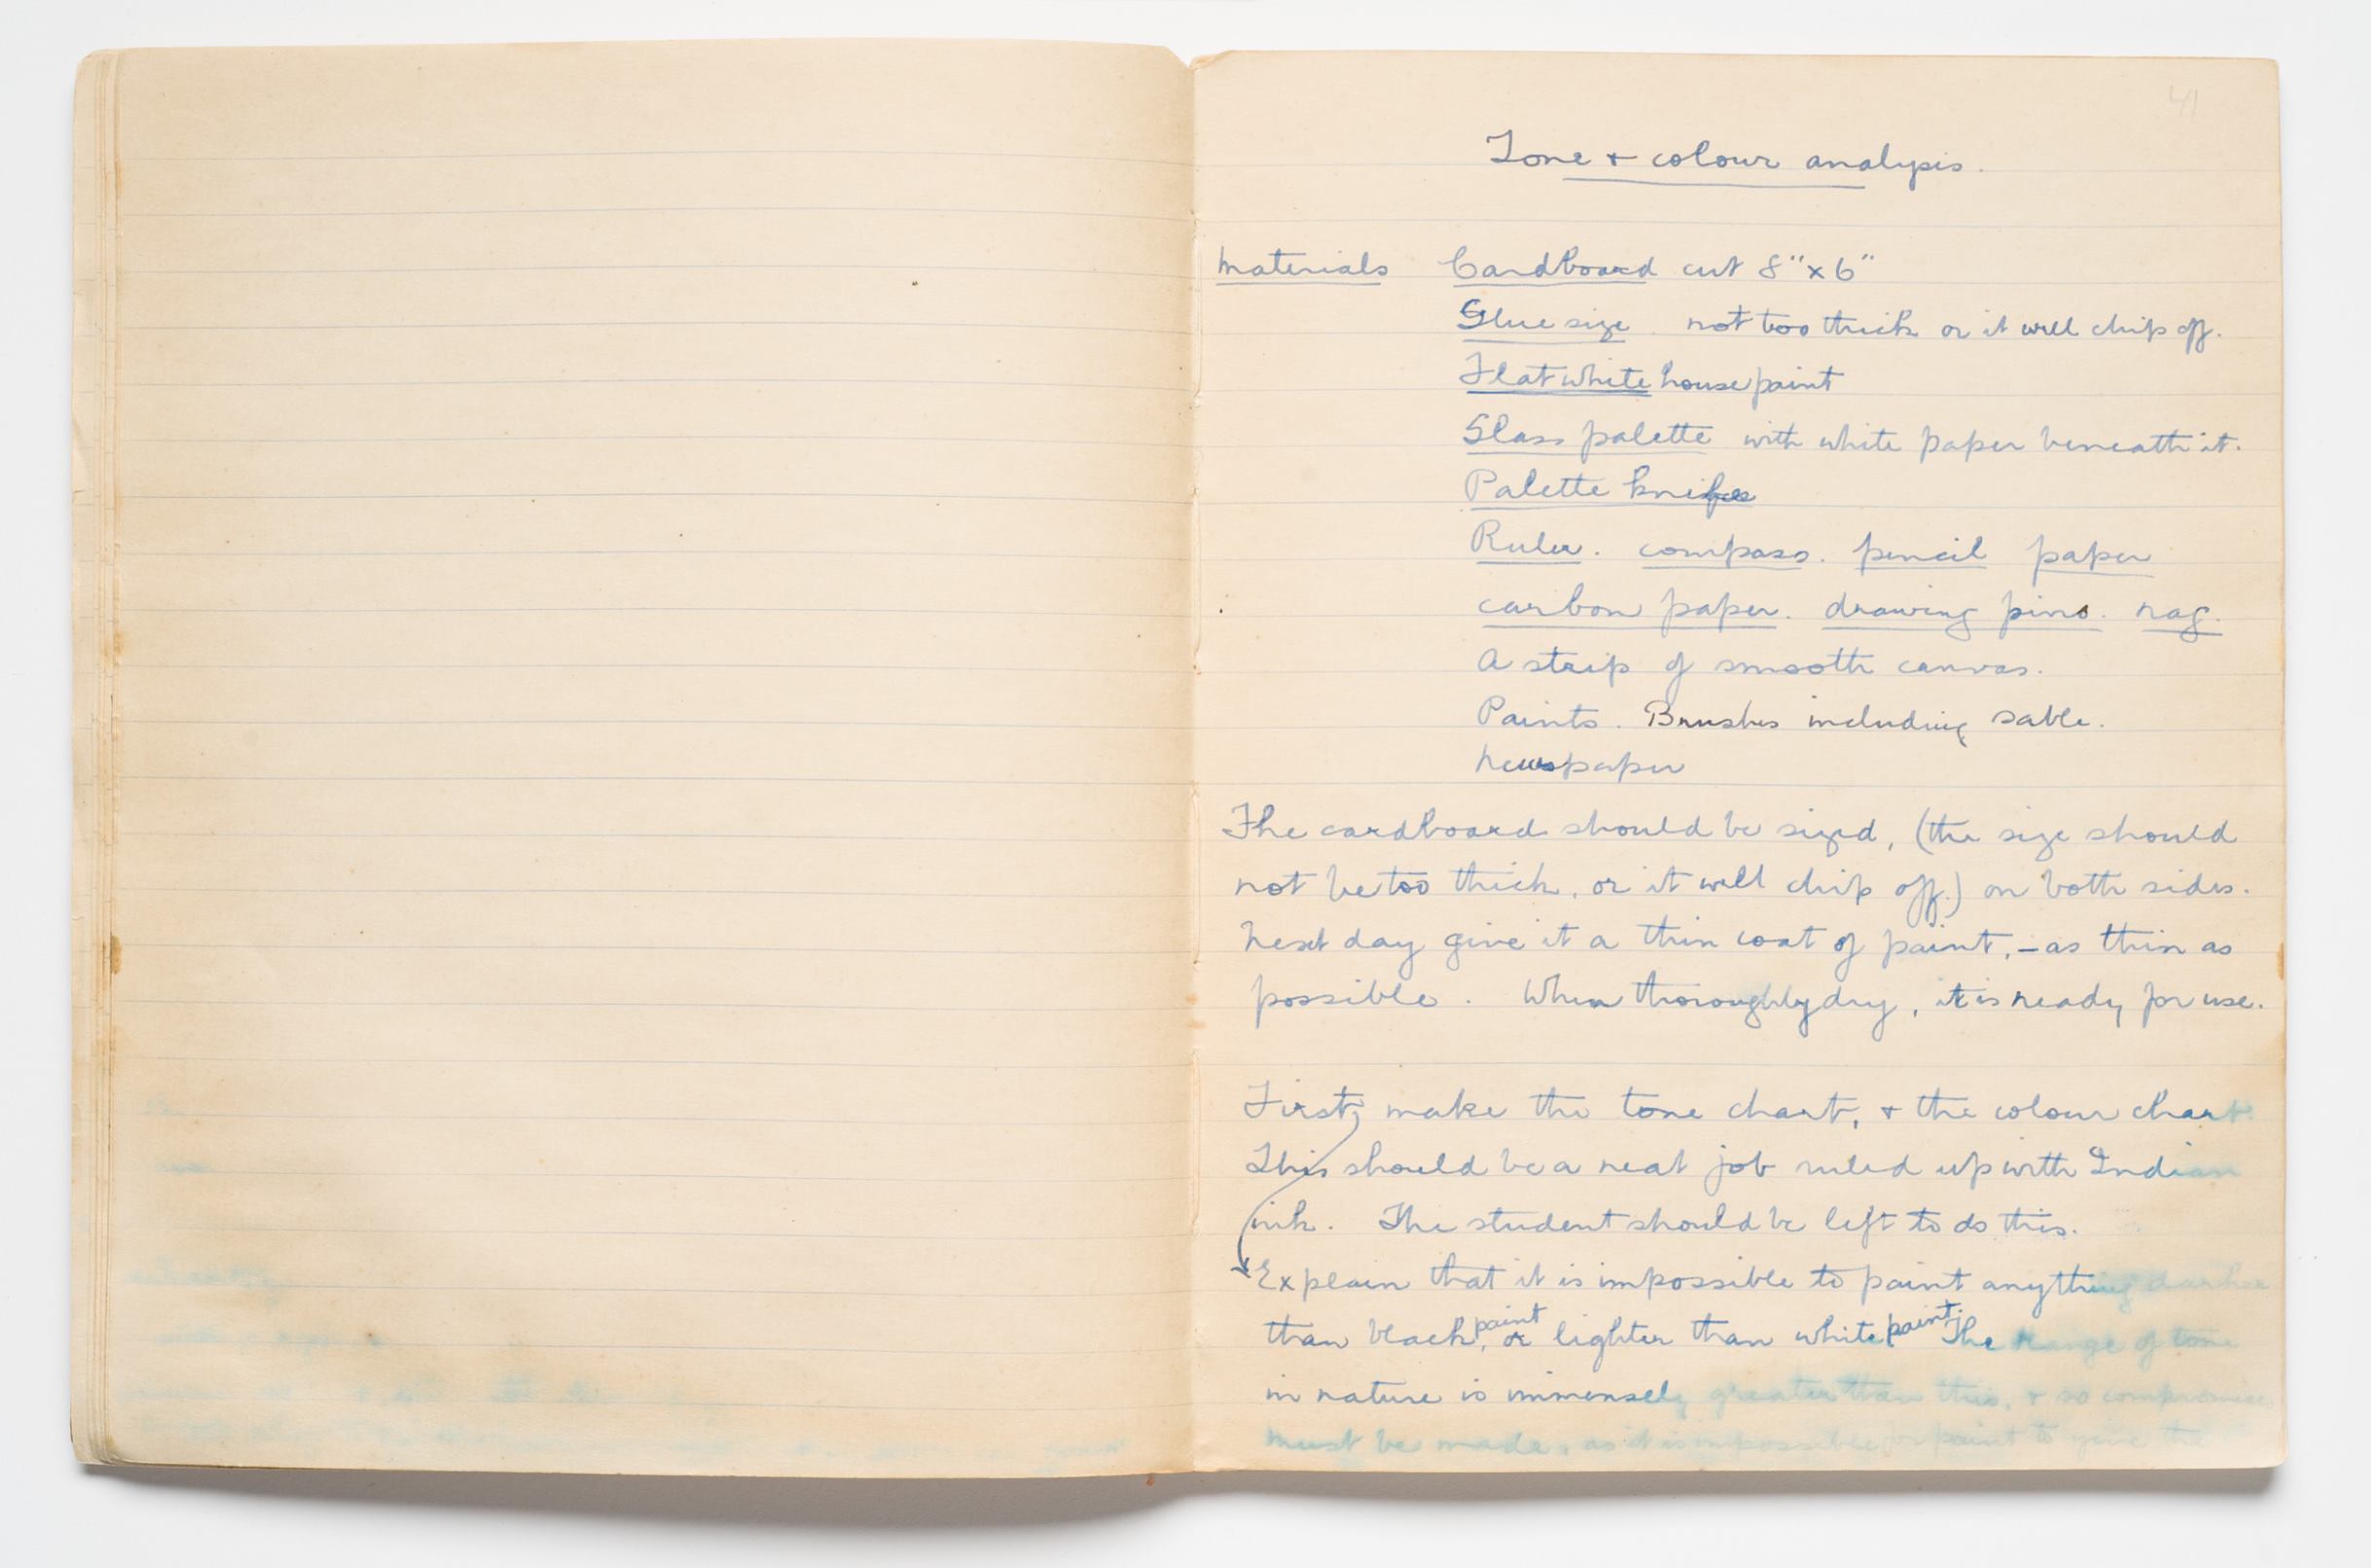 41
Tone + colour analysis.
Materials Cardboard cut 8" x 6"
Glue size. not too thick or it will chip off.
Flat white house paint
Glass palette with white paper beneath it.
Palette knife
Ruler. compass. pencil paper
carbon paper. drawing pins. rag.
A strip of smooth canvas.
Paints. Brushes including sable.
Newspaper
The cardboard should be sized, (the size should
not be too thick, or it will chip off.) on both sides.
Next day give it a thin coat of paint, – as thin as
possible. When thoroughly dry, it is ready for use.
First, make the tone chart, + the colour chart.
This should be a neat job ruled up with Indian
ink. The student should be left to do this.
Explain that it is impossible to paint anything darker
than black paint, or lighter than white paint. The range of tone
in nature is immensely greater than this, + so compromises
must be made, as it is impossible for paint to give the